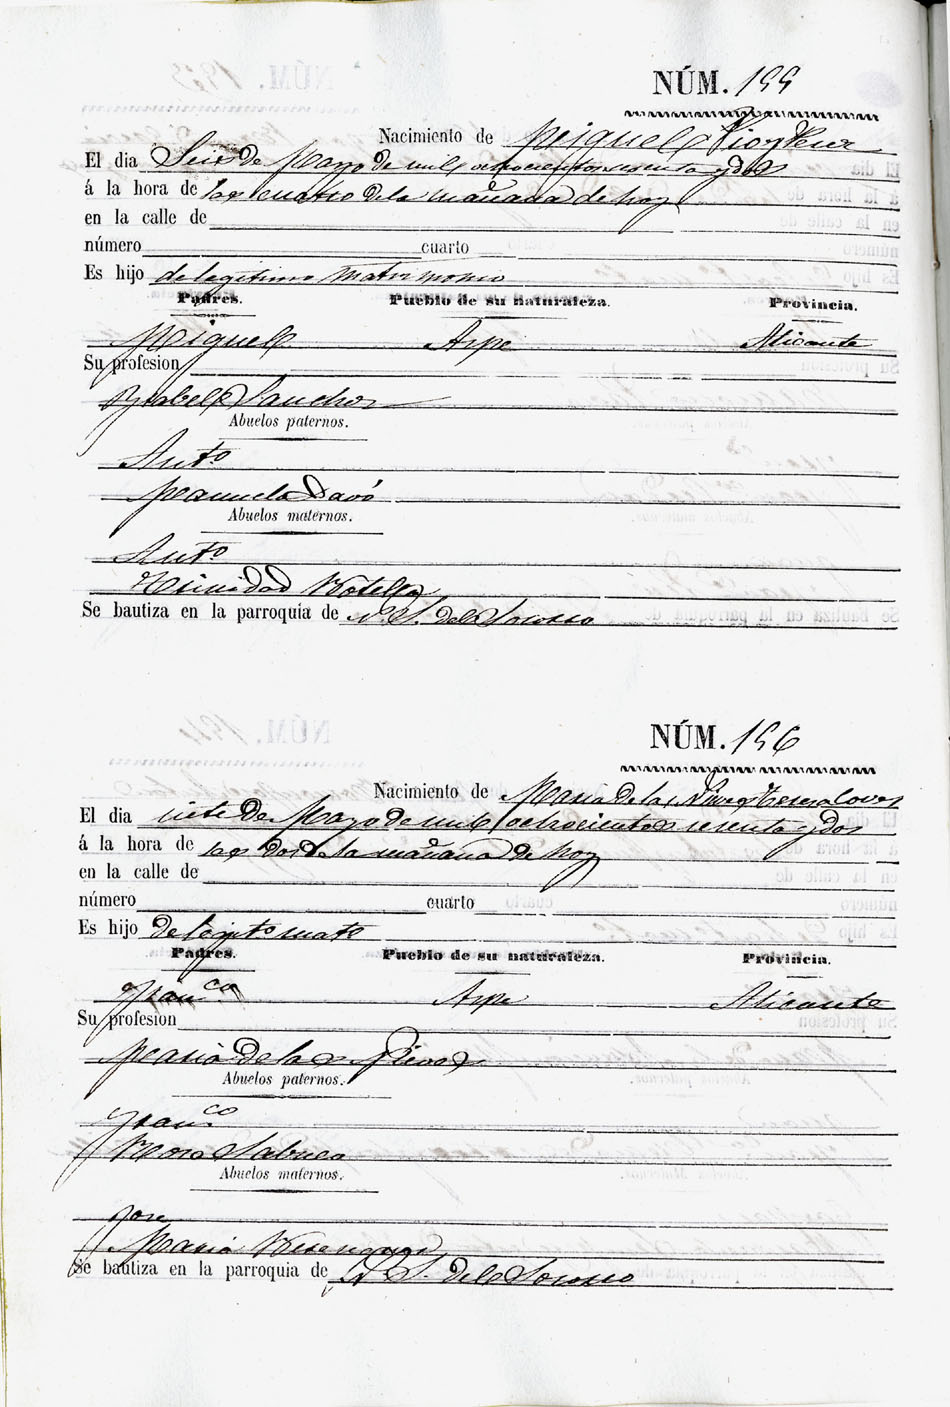 NÚM. 155
Nacimiento de Miguel
El dia Seis de Mayo de mil ochocientos sesenta y dos
á la hora de las cuatro de la mañana de hoy
en la calle de
número cuarto
Es hijo de legitimo matrimonio
Padres. Pueblo de su naturaleza. Provincia.
Miguel Aspe Alicante
Su profesion
Ysabel Sanchez
Abuelos paternos.
Antº
Manuela Davó
Abuelos maternos.
Antº
Trinidad Botella
Se bautiza en la parroquia de N. S. del Socorro
NÚM. 156
Nacimiento de Maria de las Nieves Teresa
El dia siete de Mayo de mil ochocientos sesenta y dos
á la hora de las dos de la mañana de hoy
en la calle de
número cuarto
Es hijo de legitº matº
Padres. Pueblo de su naturaleza. Provincia.
Franco Aspe Alicante
Su profesion
Maria de las Nieves
Abuelos paternos.
Franco
Abuelos maternos.
Jose
Maria
Se bautiza en la parroquia de N. S. del Socorro